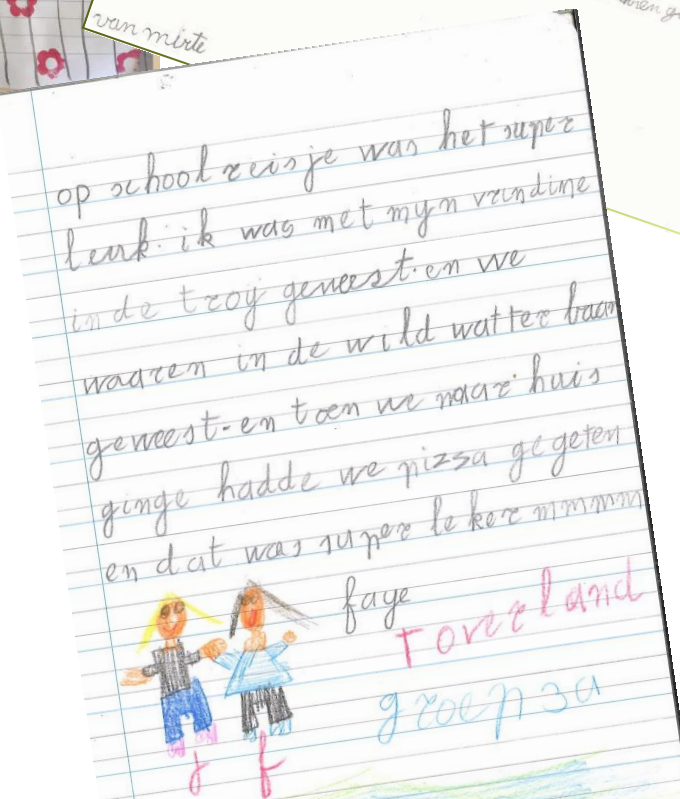 van mirte
op schoolreisje was het super
leuk. ik was met mijn vrindine
in de troy geweest. en we
waaren in de wild watter baan
geweest. en toen we naar huis
ginge hadde we pizsa gegeten
en dat was super leker mmmmm
faye
Toverland
groep 3a
j f